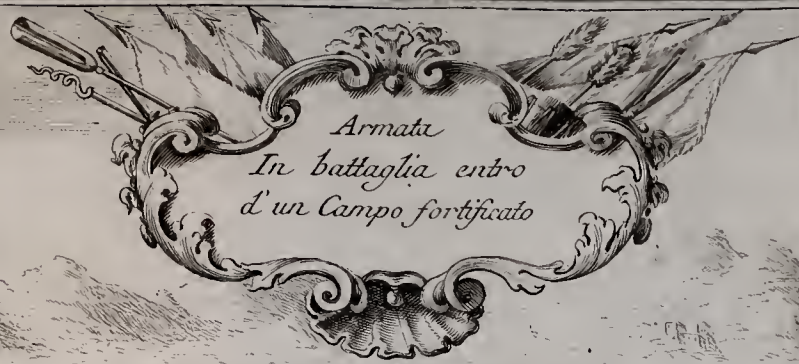 Armata
In battaglia entro
d'un Campo fortificato